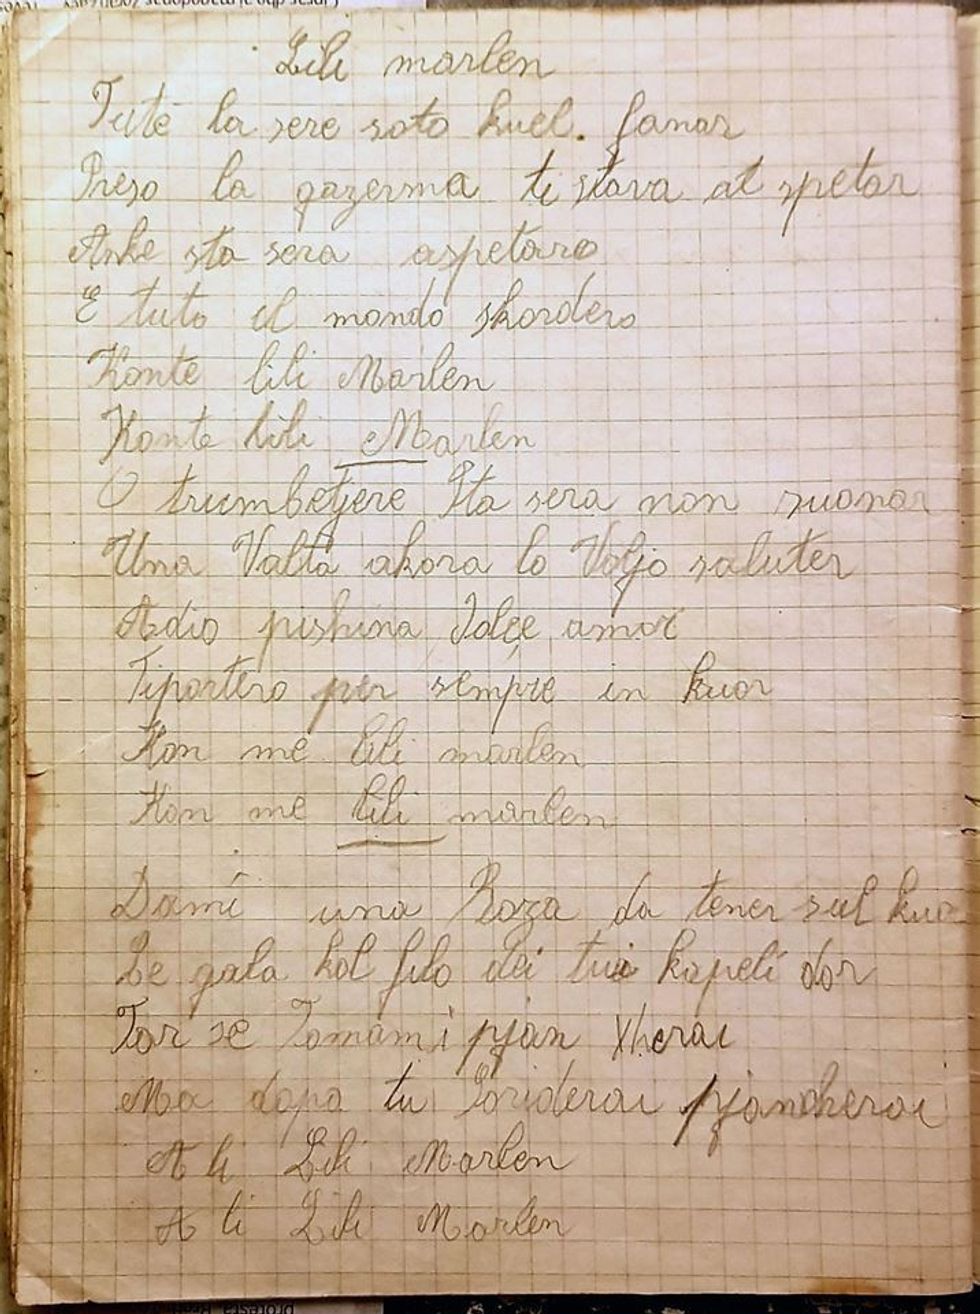 Lili marlen
Tute la sere soto kuel. fanar
Preso la gazerma ti stava at spetar
Anke sta sera aspetaro
E tuto il mondo skordero
Konte lili Marlen
Konte lili Marlen
O trumbetjere Sta sera non suonar
Una Valta akora lo Voljo saluter
Adio pishina Dolçe amor
Tiportero per sempre in kuor
Kon me lili marlen
Kon me lili marlen
Dami una Roza da tener sul kuor
Le gala kol filo dei tuoi kapeli dor
For se Tomami pjan xherai
Ma dopa tu Soriderai pjancherai
A ti Lili Marlen
A ti Lili Marlen